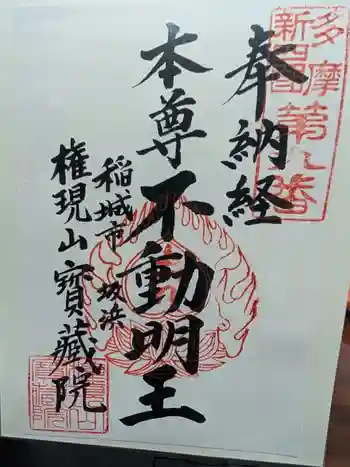 多摩
新四国
第八番
奉納経
本尊不動明王
稲城市坂浜
権現山寳蔵院